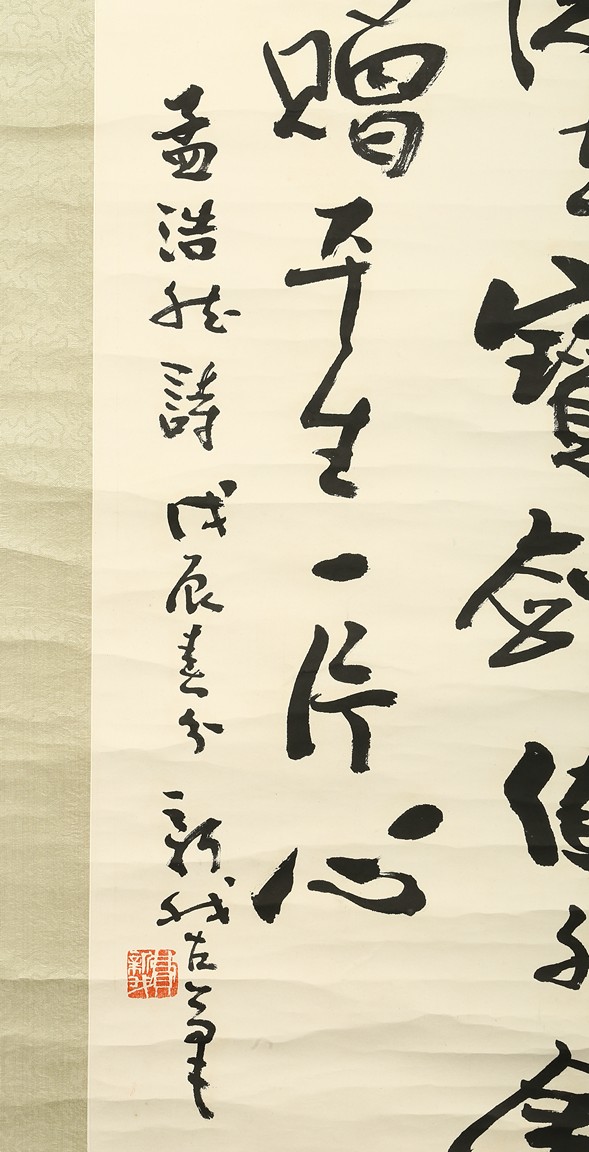 去寶劍值千金
贈平生一片心
孟浩然詩 戊辰春分 新我左筆